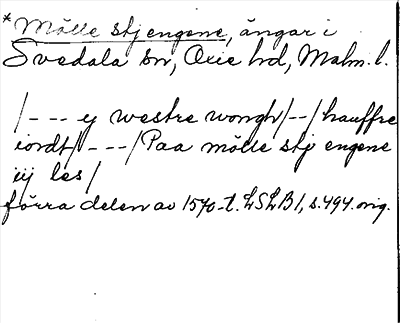 *Mölle stj engene, ängar i
Svedala sn, Oxie hd, Malm. l.
/--- ej westre wongh/--/hauffre
iordt/---/Paa mölle stj engene
iij les/
förra delen av 1570-t. LSLB 1, s. 494. orig.